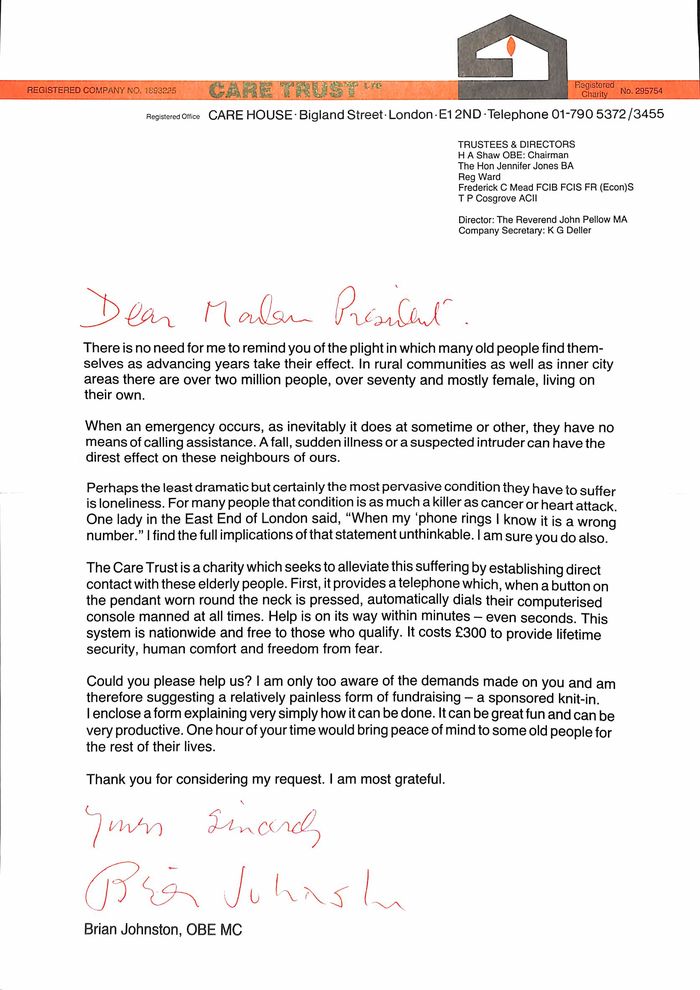 REGISTERED COMPANY NO. 1893225
CARE TRUST LTD
Registered
Charity
No. 295754
Registered Office CARE HOUSE · Bigland Street · London · E1 2ND · Telephone 01-790 5372/3455
TRUSTEES & DIRECTORS
H A Shaw OBE: Chairman
The Hon Jennifer Jones BA
Reg Ward
Frederick C Mead FCIB FCIS FR (Econ)S
T P Cosgrove ACII
Director: The Reverend John Pellow MA
Company Secretary: K G Deller
Dear Madam President.
There is no need for me to remind you of the plight in which many old people find them-
selves as advancing years take their effect. In rural communities as well as inner city
areas there are over two million people, over seventy and mostly female, living on
their own.
When an emergency occurs, as inevitably it does at sometime or other, they have no
means of calling assistance. A fall, sudden illness or a suspected intruder can have the
direst effect on these neighbours of ours.
Perhaps the least dramatic but certainly the most pervasive condition they have to suffer
is loneliness. For many people that condition is as much a killer as cancer or heart attack.
One lady in the East End of London said, “When my ‘phone rings I know it is a wrong
number.” I find the full implications of that statement unthinkable. I am sure you do also.
The Care Trust is a charity which seeks to alleviate this suffering by establishing direct
contact with these elderly people. First, it provides a telephone which, when a button on
the pendant worn round the neck is pressed, automatically dials their computerised
console manned at all times. Help is on its way within minutes – even seconds. This
system is nationwide and free to those who qualify. It costs £300 to provide lifetime
security, human comfort and freedom from fear.
Could you please help us? I am only too aware of the demands made on you and am
therefore suggesting a relatively painless form of fundraising – a sponsored knit-in.
I enclose a form explaining very simply how it can be done. It can be great fun and can be
very productive. One hour of your time would bring peace of mind to some old people for
the rest of their lives.
Thank you for considering my request. I am most grateful.
Yours Sincerely
Brian Johnston
Brian Johnston, OBE MC